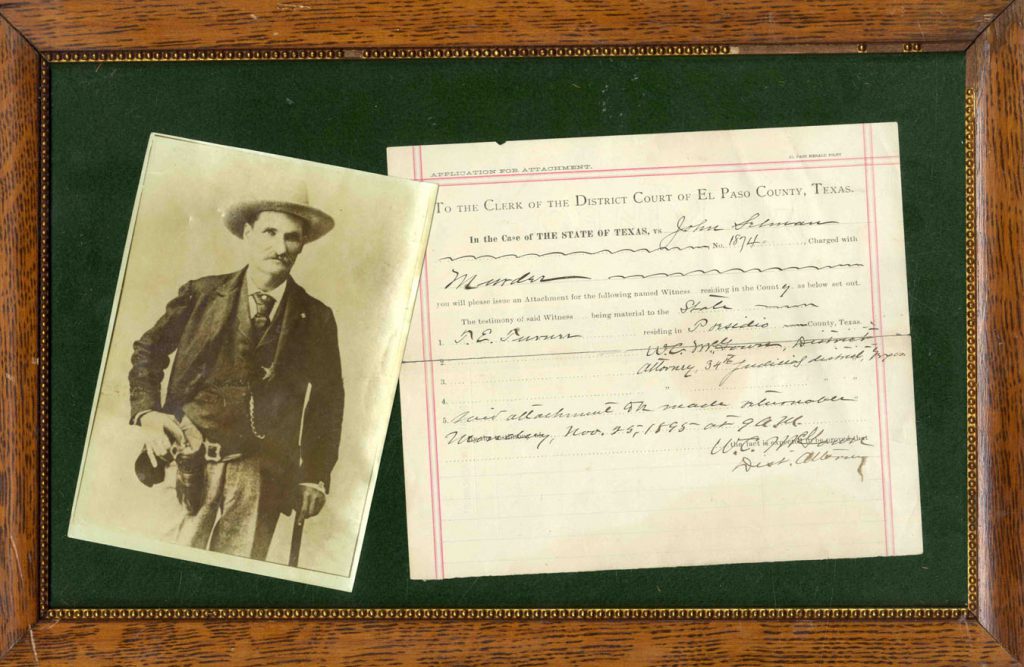 APPLICATION FOR ATTACHMENT.
EL PASO HERALD PRINT
To the Clerk of the District Court of El Paso County, Texas.
In the Case of THE STATE OF TEXAS, vs John Selman
No. 1874 , Charged with
Murder
you will please issue an Attachment for the following named Witness residing in the County as below set out.
The testimony of said Witness being material to the State
1. residing in Presidio County, Texas.
2. W.C. McGown, District
3. Attorney, 34th Judicial district, Texas
4. " " "
5. Said attachment made returnable
Monday, Nov. 25, 1895 at 9 A.M.
W.C. McGown
Dist. Attorney